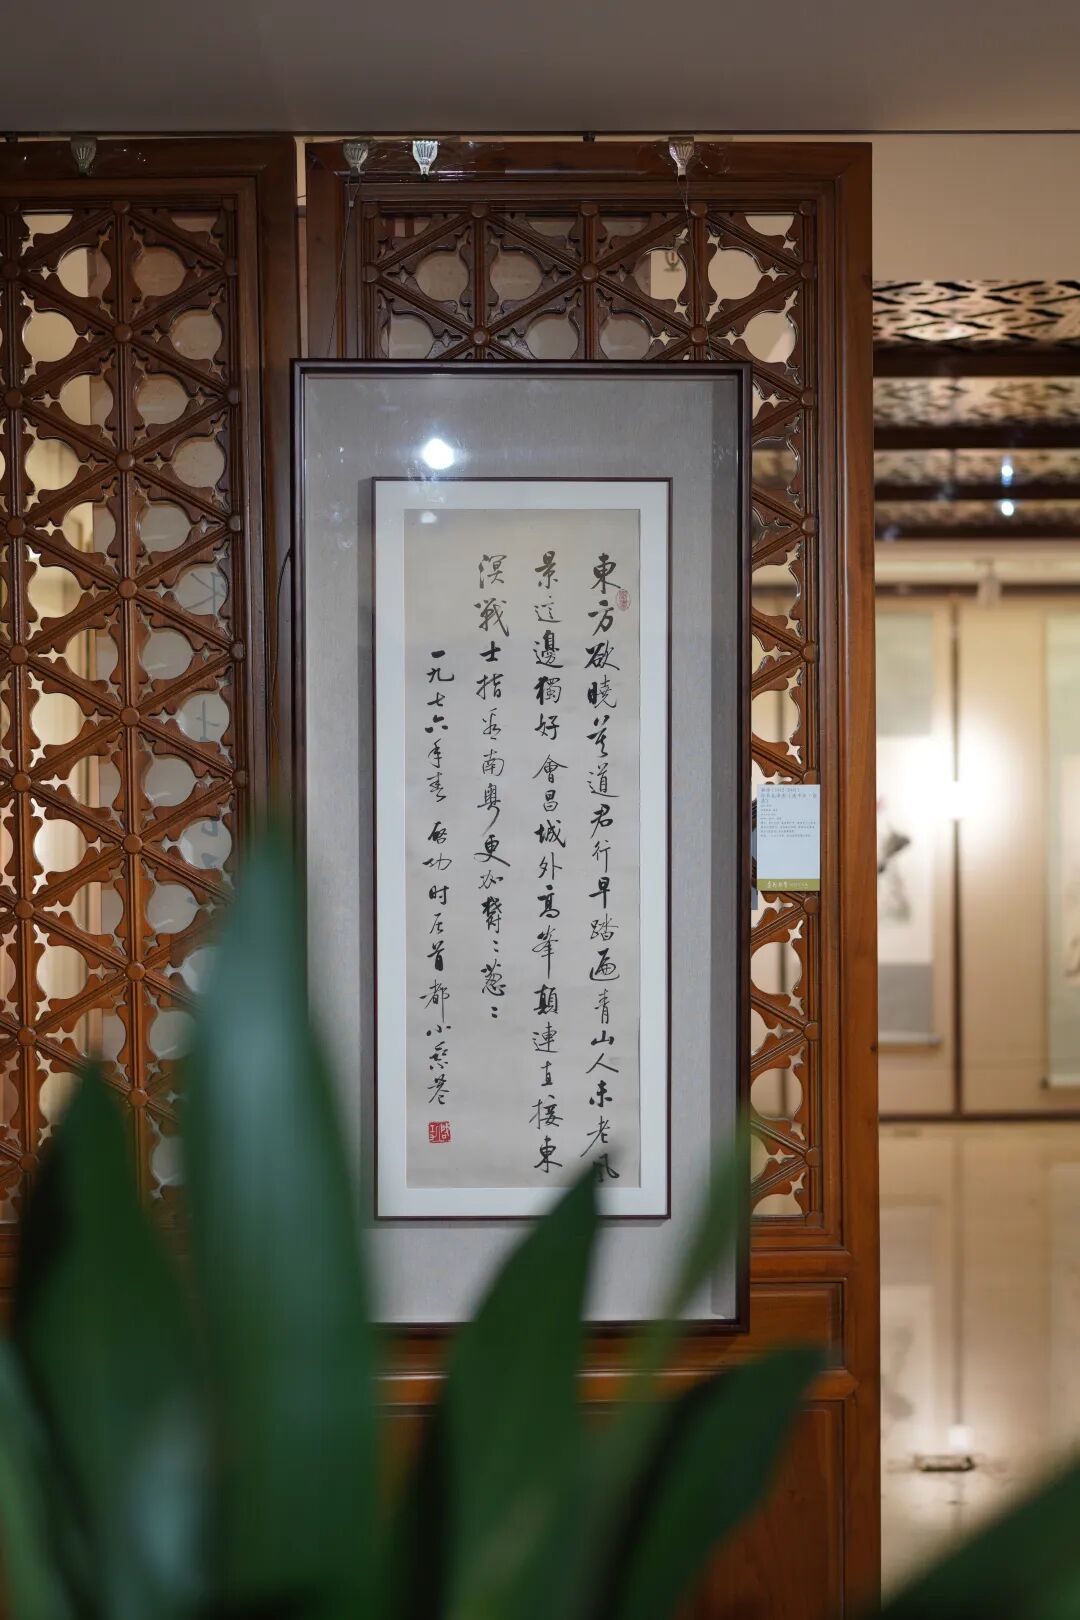 東方欲曉莫道君行早踏遍青山人未老風
景這邊獨好會昌城外高峯顛連直接東
溟戰士指看南粵更加欝〻蔥〻
一九七六年春啓功時居首都小乘巷